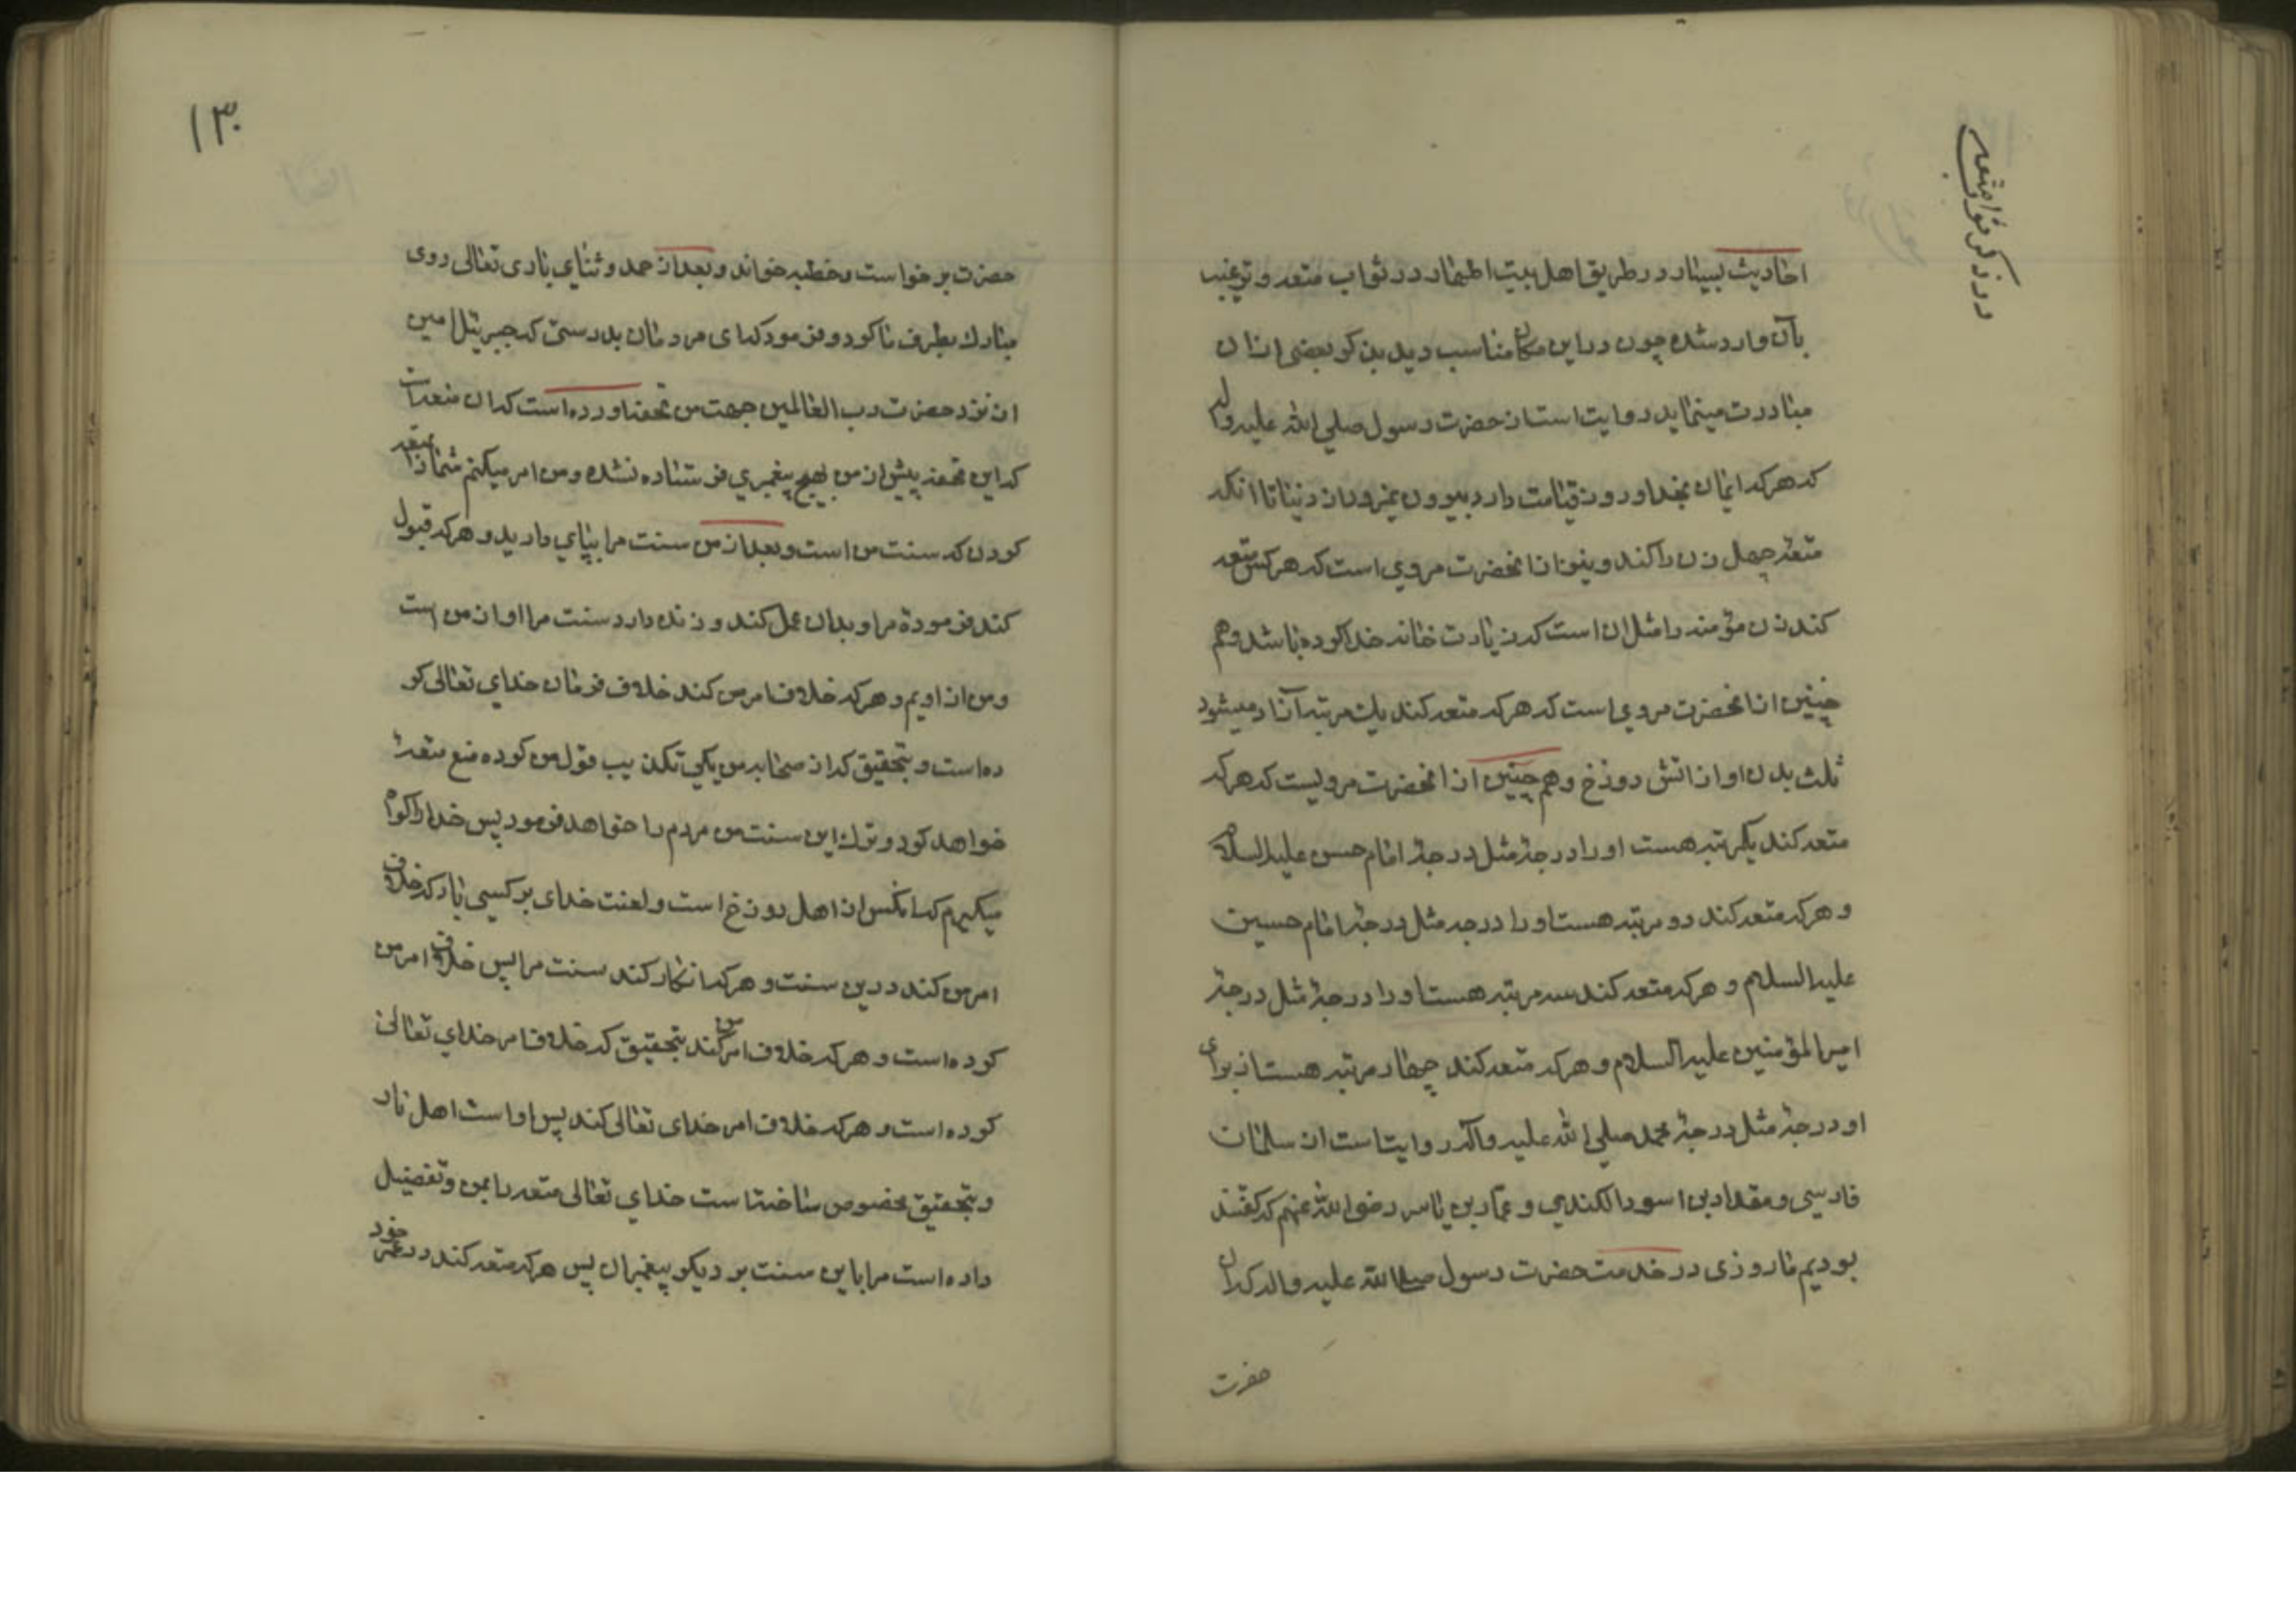 در ذکر ثواب متعه
احادیث بسیار در طریق اهل بیت اطهار در ثواب متعه و ترغیب
بآن وارد شده چون در این مکان مناسب دید بذکر بعضی از ان
مبادرت مینماید روایت است از حضرت رسول صلی الله علیه واله
که هر که ایمان بخدا و روز قیامت دارد بیرون نمیرود از دنیا تا انکه
متعه چهل زن را کند و نیز از انحضرت مروی است که هر کس متعه
کند زن مؤمنه را مثل ان است که زیارت خانه خدا کرده باشد و هم
چنین از انحضرت مروی است که هر که متعه کند یك مرتبه آزاد میشود
ثلث بدن او از اتش دوزخ و هم چنین از انحضرت مرویست که هر که
متعه کند یکمرتبه هست او را درجۀ مثل درجۀ امام حسن علیه السلام
و هر که متعه کند دو مرتبه هست او را درجه مثل درجۀ امام حسین
علیه السلام و هر که متعه کند سه مرتبه هست او را درجۀ مثل درجۀ
امیر المؤمنین علیه السلام و هر که متعه کند چهار مرتبه هست از برای
او درجۀ مثل درجۀ محمد صلی الله علیه وآله روایت است از سلمان
فارسی و مقداد بن اسود الکندی و عمار بن یاسر رضی الله عنهم که گفتند
بودیم ما روزی در خدمت حضرت رسول صلی الله علیه واله که ان
حضرت
۱۳۰
حضرت بر خواست و خطبه خواند و بعد از حمد و ثنای باری تعالی روی
مبارك بطرف ما کرد و فرمود که ای مردمان بدرستی که جبرئیل امین
از نزد حضرت رب العالمین جهت من تحفه اورده است که ان متعه است
که این تحفه پیش از من بهیچ پیغمبری فرستاده نشده و من امر میکنم شما را بمتعه
کردن که سنت من است و بعد از من سنت مرا بپای دارید و هر که قبول
کند فرمودۀ مرا و بدان عمل کند و زنده دارد سنت مرا او از من است
و من از اویم و هر که خلاف امر من کند خلاف فرمان خدای تعالی کر
ده است و بتحقیق که از صحابه من یکی تکذیب قول من کرده منع متعه
خواهد کرد و ترك این سنت من مردم را خواهد فرمود پس خدا را کواه
میگیرم که انکس از اهل دوزخ است و لعنت خدای بر کسی باد که خلاف
امر من کند درین سنت و هر که انکار کند سنت مرا پس خلاف امر من
کرده است و هر که خلاف امر من کند بتحقیق که خلاف امر خدای تعالی
کرده است و هر که خلاف امر خدای تعالی کند پس او است اهل نار
و بتحقیق مخصوص ساخته است خدای تعالی متعه را بمن و تفضیل
داده است مرا باین سنت بر دیکر پیغمبران پس هر که متعه کند در عمر خود